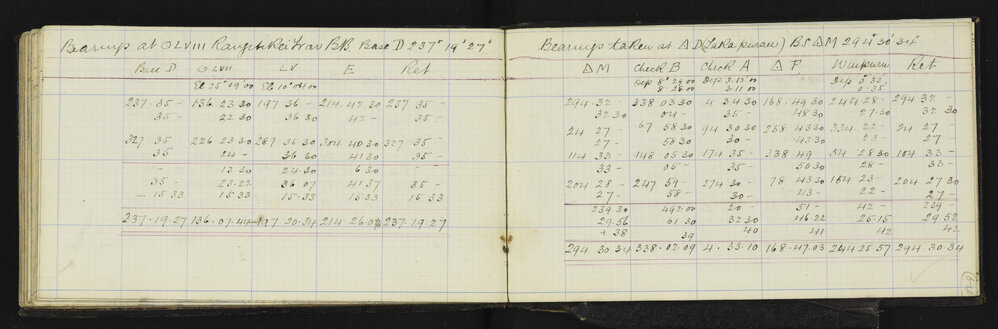 Bearings at OLVIII Rangitikei Trav BB Base D 237° 19' 27"
Base D OLVII LV E Ret
El 25° 29' 00 El 10° 04' 00
237 . 35 — 136 23 30 197 36 — 214 . 42 30 237 35 —
35 — 22 30 36 30 42 — 35 —
327 35 226 23 30 287 35 30 304 40 30 327 35
35 24 — 36 30 41 30 35 —
— 13 30 24 30 6 30
35 — 23 . 22 36 07 41 . 37 35 —
— 15 33 15 33 15 . 33 15 33 15 33
237 . 19 . 27 136 . 07 . 44 197 20 . 34 214 . 26 . 04 237 . 19 . 27
Bearings taken at △ D (Tukapurau) BS △ M 294° 30' 34"
△ M Check B Check A △ F Ret
Dep 8° 29' 00 Dep 3 . 12' 00 Dep 0° 33'
8 . 28 00 3 . 11 00 0 . 35
294 . 32 — 338 03 . 30 4 34 30 168 . 49 30 244 28 — 294 32 —
32 30 04 — 35 — 48 30 27 . 30 32 30
24 27 — 67 58 30 94 30 30 258 43 30 334 22 — 24 27 —
27 — 58 30 30 — 43 30 23 — 27
114 33 — 148 05 30 174 35 — 338 49 54 28 30 104 33 —
33 — 05 — 35 — 50 30 28 — 33 —
204 28 — 247 59 — 274 30 — 78 43 30 154 23 — 204 27 30
27 — 58 — 30 — 43 — 22 — 27 —
239 . 30 492 . 00 20 — 51 — 42 — 239 —
29 . 56 01 . 30 32 30 46 22 25 . 15 29 . 52
+ 38 39 40 41 42 42
294 30 . 34 338 . 02 . 09 4 . 33 . 10 168 . 47 . 03 244 25 . 57 294 30 . 34